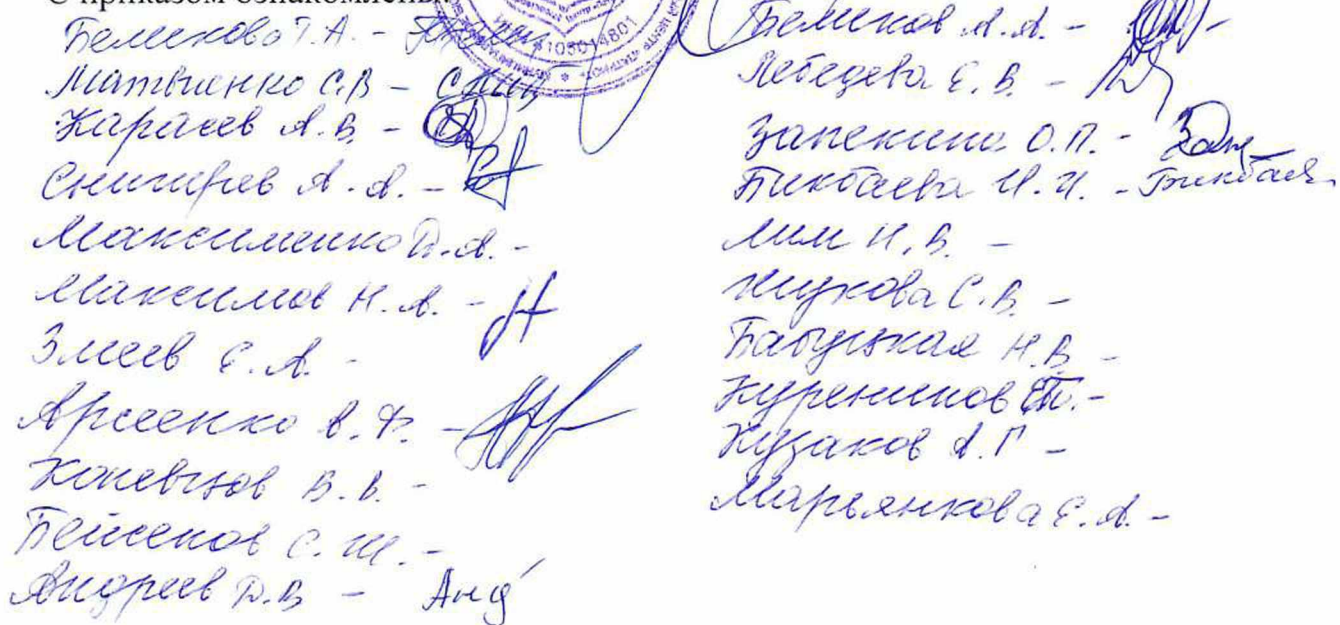 С приказом ознакомлены:
Беликова Т.А. -
Матвиенко С.В -
Карасев А.В. -
Снигирев А.А. -
Максименко Д.А. -
Максимов Н.А. -
Змеев Е.А. -
Арсеенко В.Ф. -
Коневцов В.В. -
Бейсенов С.Ш. -
Андреев Д.В - Анд
Беликов А.А. -
Лебедева Е.В. -
Запекина О.П. - Зап
Бикбаева И.И. - Бикбаев
Лим Н.В. -
Жукова С.В. -
Бабуцкая Н.В -
Куренинов -
Кузаков А.Г -
Марьянкова Е.А. -